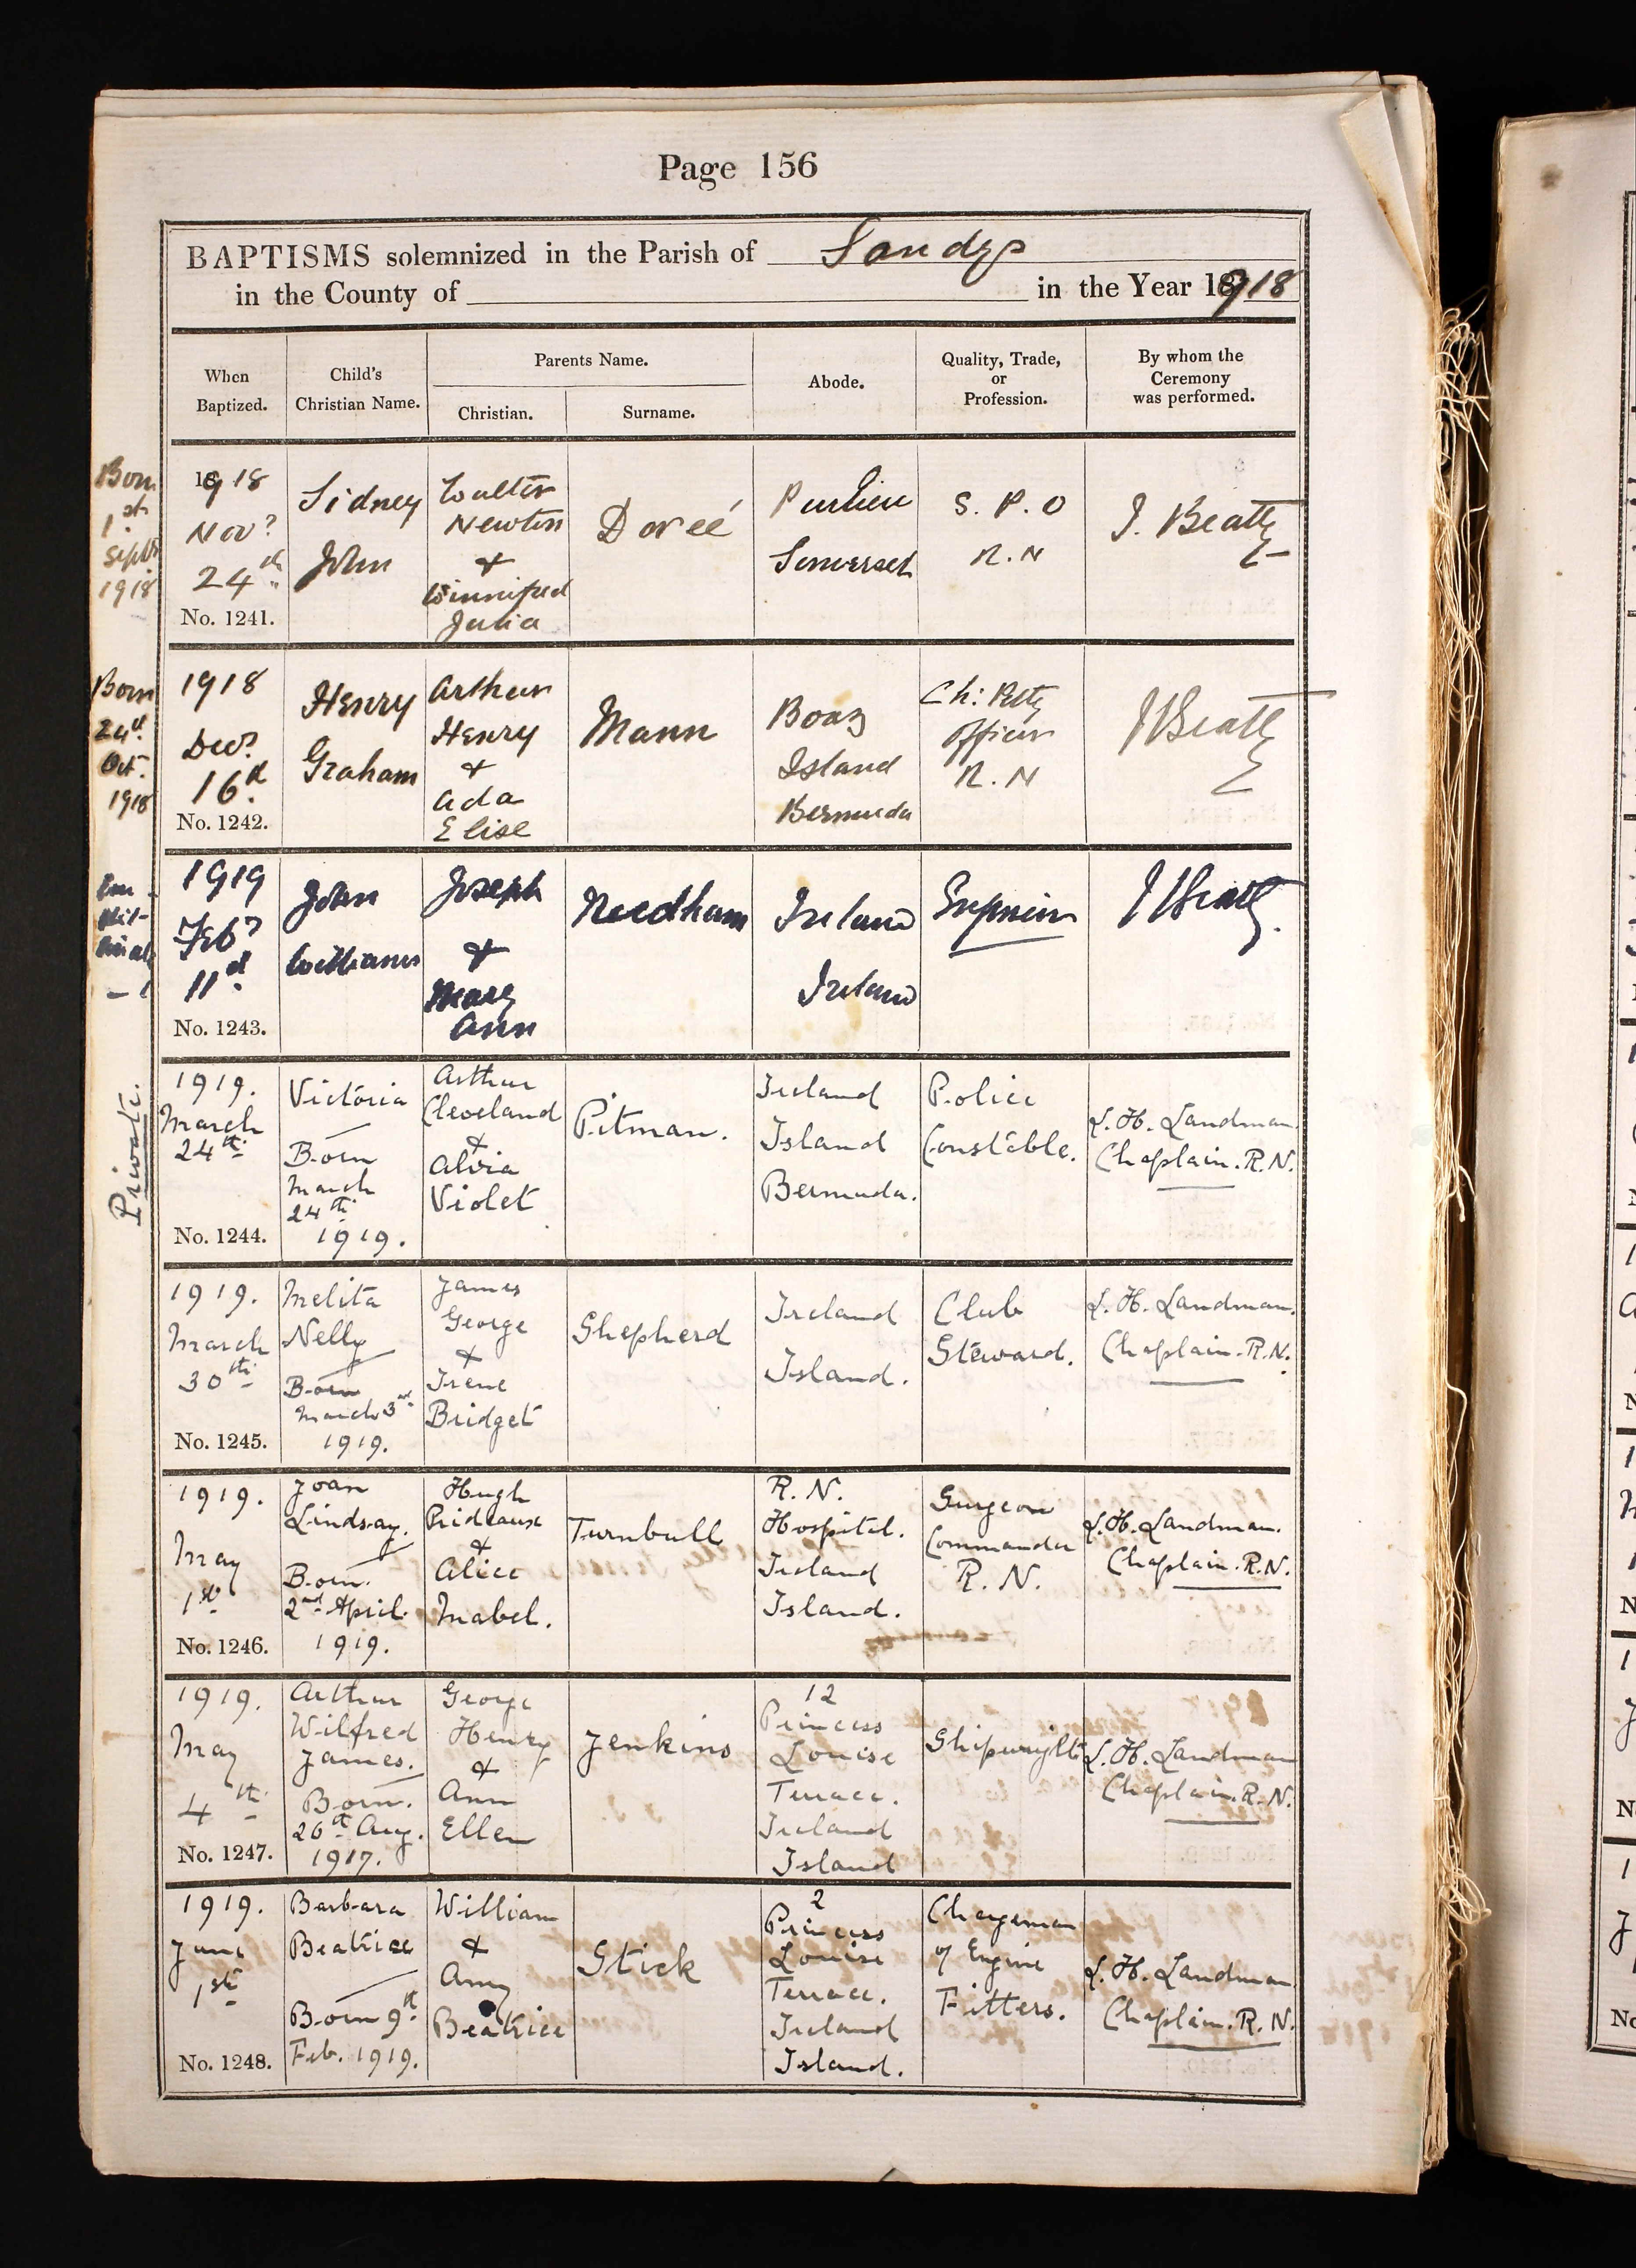 Page 156
BAPTISMS solemnized in the Parish of Sandys
in the County of in the Year 1918
When
Baptized.
Child's
Christian Name.
Parents Name.
Christian.
Surname.
Abode.
Quality, Trade,
or
Profession.
By whom the
Ceremony
was performed.
Born
1st
Septr
1918
1918
Novr
24th
No. 1241.
Sidney
John
Walter
Newton
+
Winnifred
Julia
Doreé
Somerset
S. P. O
R. N
J. Beatty
Born
24th
Oct.
1918
1918
Decr
16th
No. 1242.
Henry
Graham
Arthur
Henry
+
Ada
Elise
Mann
Boaz
Island
Bermuda
Ch: Petty
Officer
R. N
J Beatty
1919
Feb
11th
No. 1243.
John
William
Joseph
+
Mary
Ann
Needham
Ireland
Ireland
J Beatty.
Private.
1919.
March
24th
No. 1244.
Victoria
Born
March
24th
1919.
Arthur
Cleveland
+
Alvia
Violet
Pitman.
Ireland
Island
Bermuda.
Police
Constable.
L. H. Landman.
Chaplain. R.N.
1919.
March
30th
No. 1245.
Melita
Nelly
Born
March 3rd
1919.
James
George
+
Irene
Bridget
Shepherd
Ireland
Island.
Club
Steward.
L. H. Landman.
Chaplain. R.N.
1919.
May
1st
No. 1246.
Joan
Lindsay.
Born.
2nd April.
1919.
Hugh
Prideaux
+
Alice
Mabel.
Turnbull
R. N.
Hospital.
Ireland
Island.
Surgeon
Commander
R. N.
L. H. Landman.
Chaplain. R.N.
1919.
May
4th
No. 1247.
Arthur
Wilfred
James.
Born.
26th Aug.
1917.
George
Henry
+
Ann
Ellen
Jenkins
12
Princess
Louise
Terrace.
Ireland
Island
Shipwright
L. H. Landman
Chaplain. R. N.
1919.
June
1st
No. 1248.
Barbara
Beatrice
Born 9th
Feb. 1919.
William
+
Amy
Beatrice
Stick
2
Princess
Louise
Terrace.
Ireland
Island.
Chargeman
of Engine
Fitters.
L. H. Landman
Chaplain. R. N.